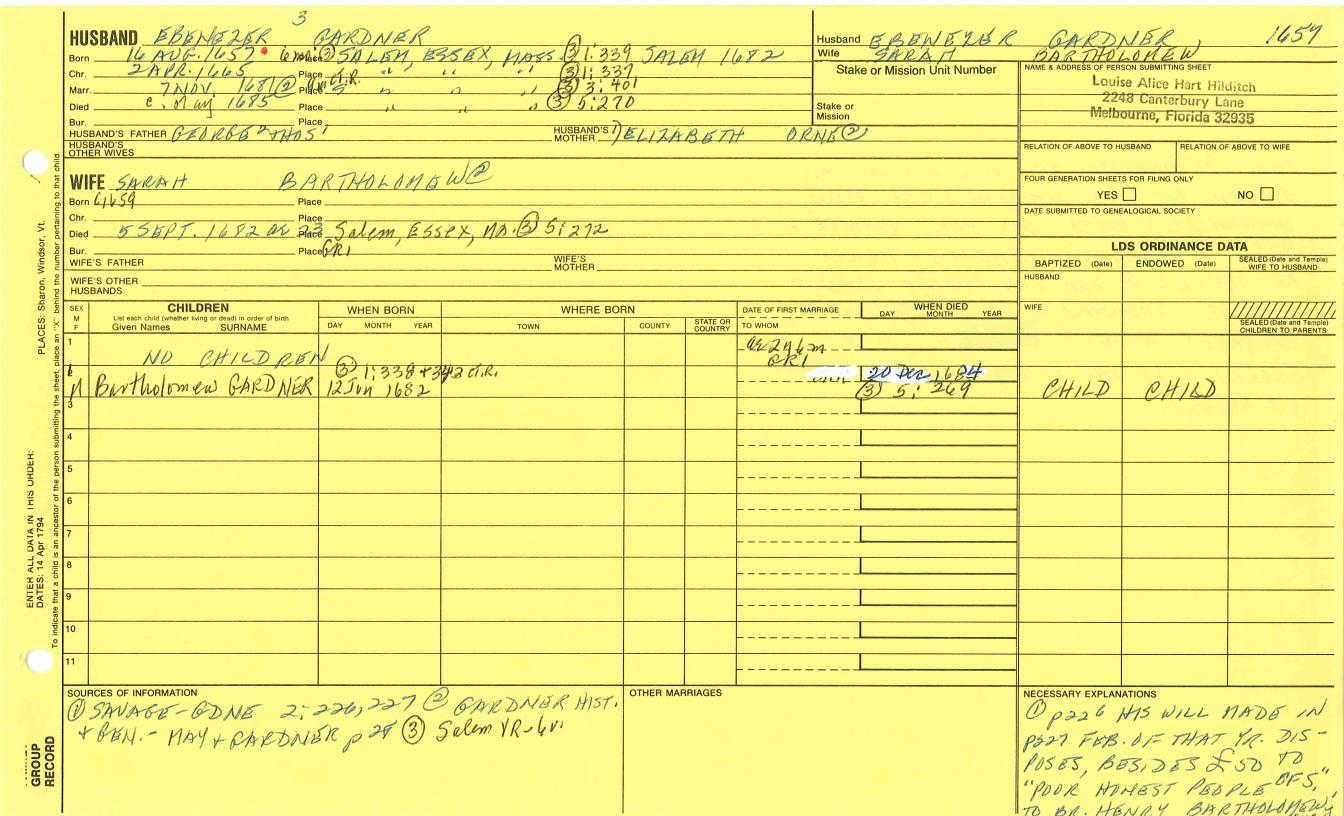 3
HUSBAND EBENEZER GARDNER
Born 16 AUG. 1657 6 mo. Place (3) SALEM, ESSEX, MASS. (3) 1:339 SALEM 1682
Chr. 2 APR. 1665 Place " " " (3) 1:337
Marr. 7 NOV. 1681 (2) CT.R. Place " " (3) 3:401
Died c. May 1685 Place " " " (3) 5:270
Bur. Place
HUSBAND'S FATHER GEORGE² THOS¹ HUSBAND'S MOTHER ) ELIZABETH ORNE (2)
HUSBAND'S OTHER WIVES
Husband EBENEZER GARDNER, 1657
Wife SARAH BARTHOLOMEW
Stake or Mission Unit Number
Stake or Mission
NAME & ADDRESS OF PERSON SUBMITTING SHEET
Louise Alice Hart Hilditch
2248 Canterbury Lane
Melbourne, Florida 32935
RELATION OF ABOVE TO HUSBAND RELATION OF ABOVE TO WIFE
FOUR GENERATION SHEETS FOR FILING ONLY
YES NO
DATE SUBMITTED TO GENEALOGICAL SOCIETY
WIFE SARAH BARTHOLOMEW (2)
Born c1659 Place
Chr. Place
Died 5 SEPT. 1682 ae 23 Place Salem, Essex, MA. (3) 5:272
Bur. Place GR1
WIFE'S FATHER WIFE'S MOTHER
WIFE'S OTHER HUSBANDS
LDS ORDINANCE DATA
BAPTIZED (Date) ENDOWED (Date) SEALED (Date and Temple) WIFE TO HUSBAND
HUSBAND
WIFE
SEALED (Date and Temple) CHILDREN TO PARENTS
SEX M F CHILDREN WHEN BORN WHERE BORN DATE OF FIRST MARRIAGE WHEN DIED
List each child (whether living or dead) in order of birth
Given Names SURNAME DAY MONTH YEAR TOWN COUNTY STATE OR COUNTRY TO WHOM DAY MONTH YEAR
1 NO CHILDREN ae 2y 6m
GR1
(3) 1:338 + 342 CT.R. 20 Dec 1684
M Bartholomew GARDNER 12 Jun 1682 (3) 5:269 CHILD CHILD
3
4
5
6
7
8
9
10
11
SOURCES OF INFORMATION
(1) SAVAGE-GDNE 2:226,227 (2) GARDNER HIST.
+ GEN. - MAY + GARDNER p 29 (3) Salem VR-6v.
OTHER MARRIAGES
NECESSARY EXPLANATIONS
(1) p226 HIS WILL MADE IN
p227 FEB. OF THAT YR. DIS-
POSES, BESIDES £50 TO
"POOR HONEST PEOPLE OF S,"
TO BR. HENRY BARTHOLOMEW,
PLACES: Sharon, Windsor, Vt.
ENTER ALL DATA IN THIS ORDER:
DATES: 14 Apr 1794
To indicate that a child is an ancestor of the person submitting the sheet, place an "X" behind the number pertaining to that child.
GROUP RECORD